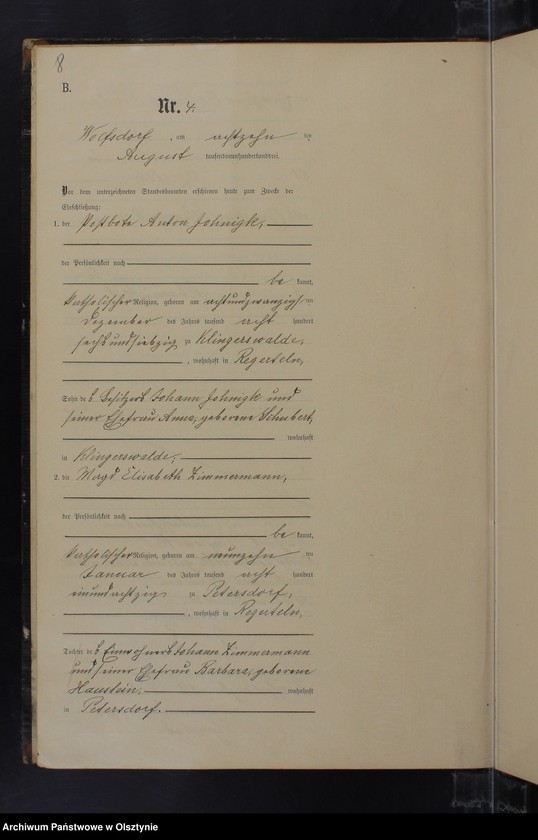 8
B.
Nr. 4.
Wolfsdorf, am achtzehn ten
August tausendneunhundertunddrei.
Vor dem unterzeichneten Standesbeamten erschienen heute zum Zwecke der
Eheschließung:
1. der Postbote Anton Johnigk,
der Persönlichkeit nach
be kannt,
katholischer Religion, geboren am achtundzwanzigsten
Dezember des Jahres tausend acht hundert
sechsundsiebzig zu Klingerswalde,
, wohnhaft in Regerteln,
Sohn des Besitzers Johann Johnigk und
seiner Ehefrau Anna, geborene Schubert,
wohnhaft
in Klingerswalde,
2. die Magd Elisabeth Zimmermann,
der Persönlichkeit nach
be kannt,
katholischer Religion, geboren am neunzehn ten
Januar des Jahres tausend acht hundert
einundachtzig zu Petersdorf,
, wohnhaft in Regerteln,
Tochter des Einwohners Johann Zimmermann
und seiner Ehefrau Barbara, geborene
Haustein, wohnhaft
in Petersdorf.
Archiwum Państwowe w Olsztynie